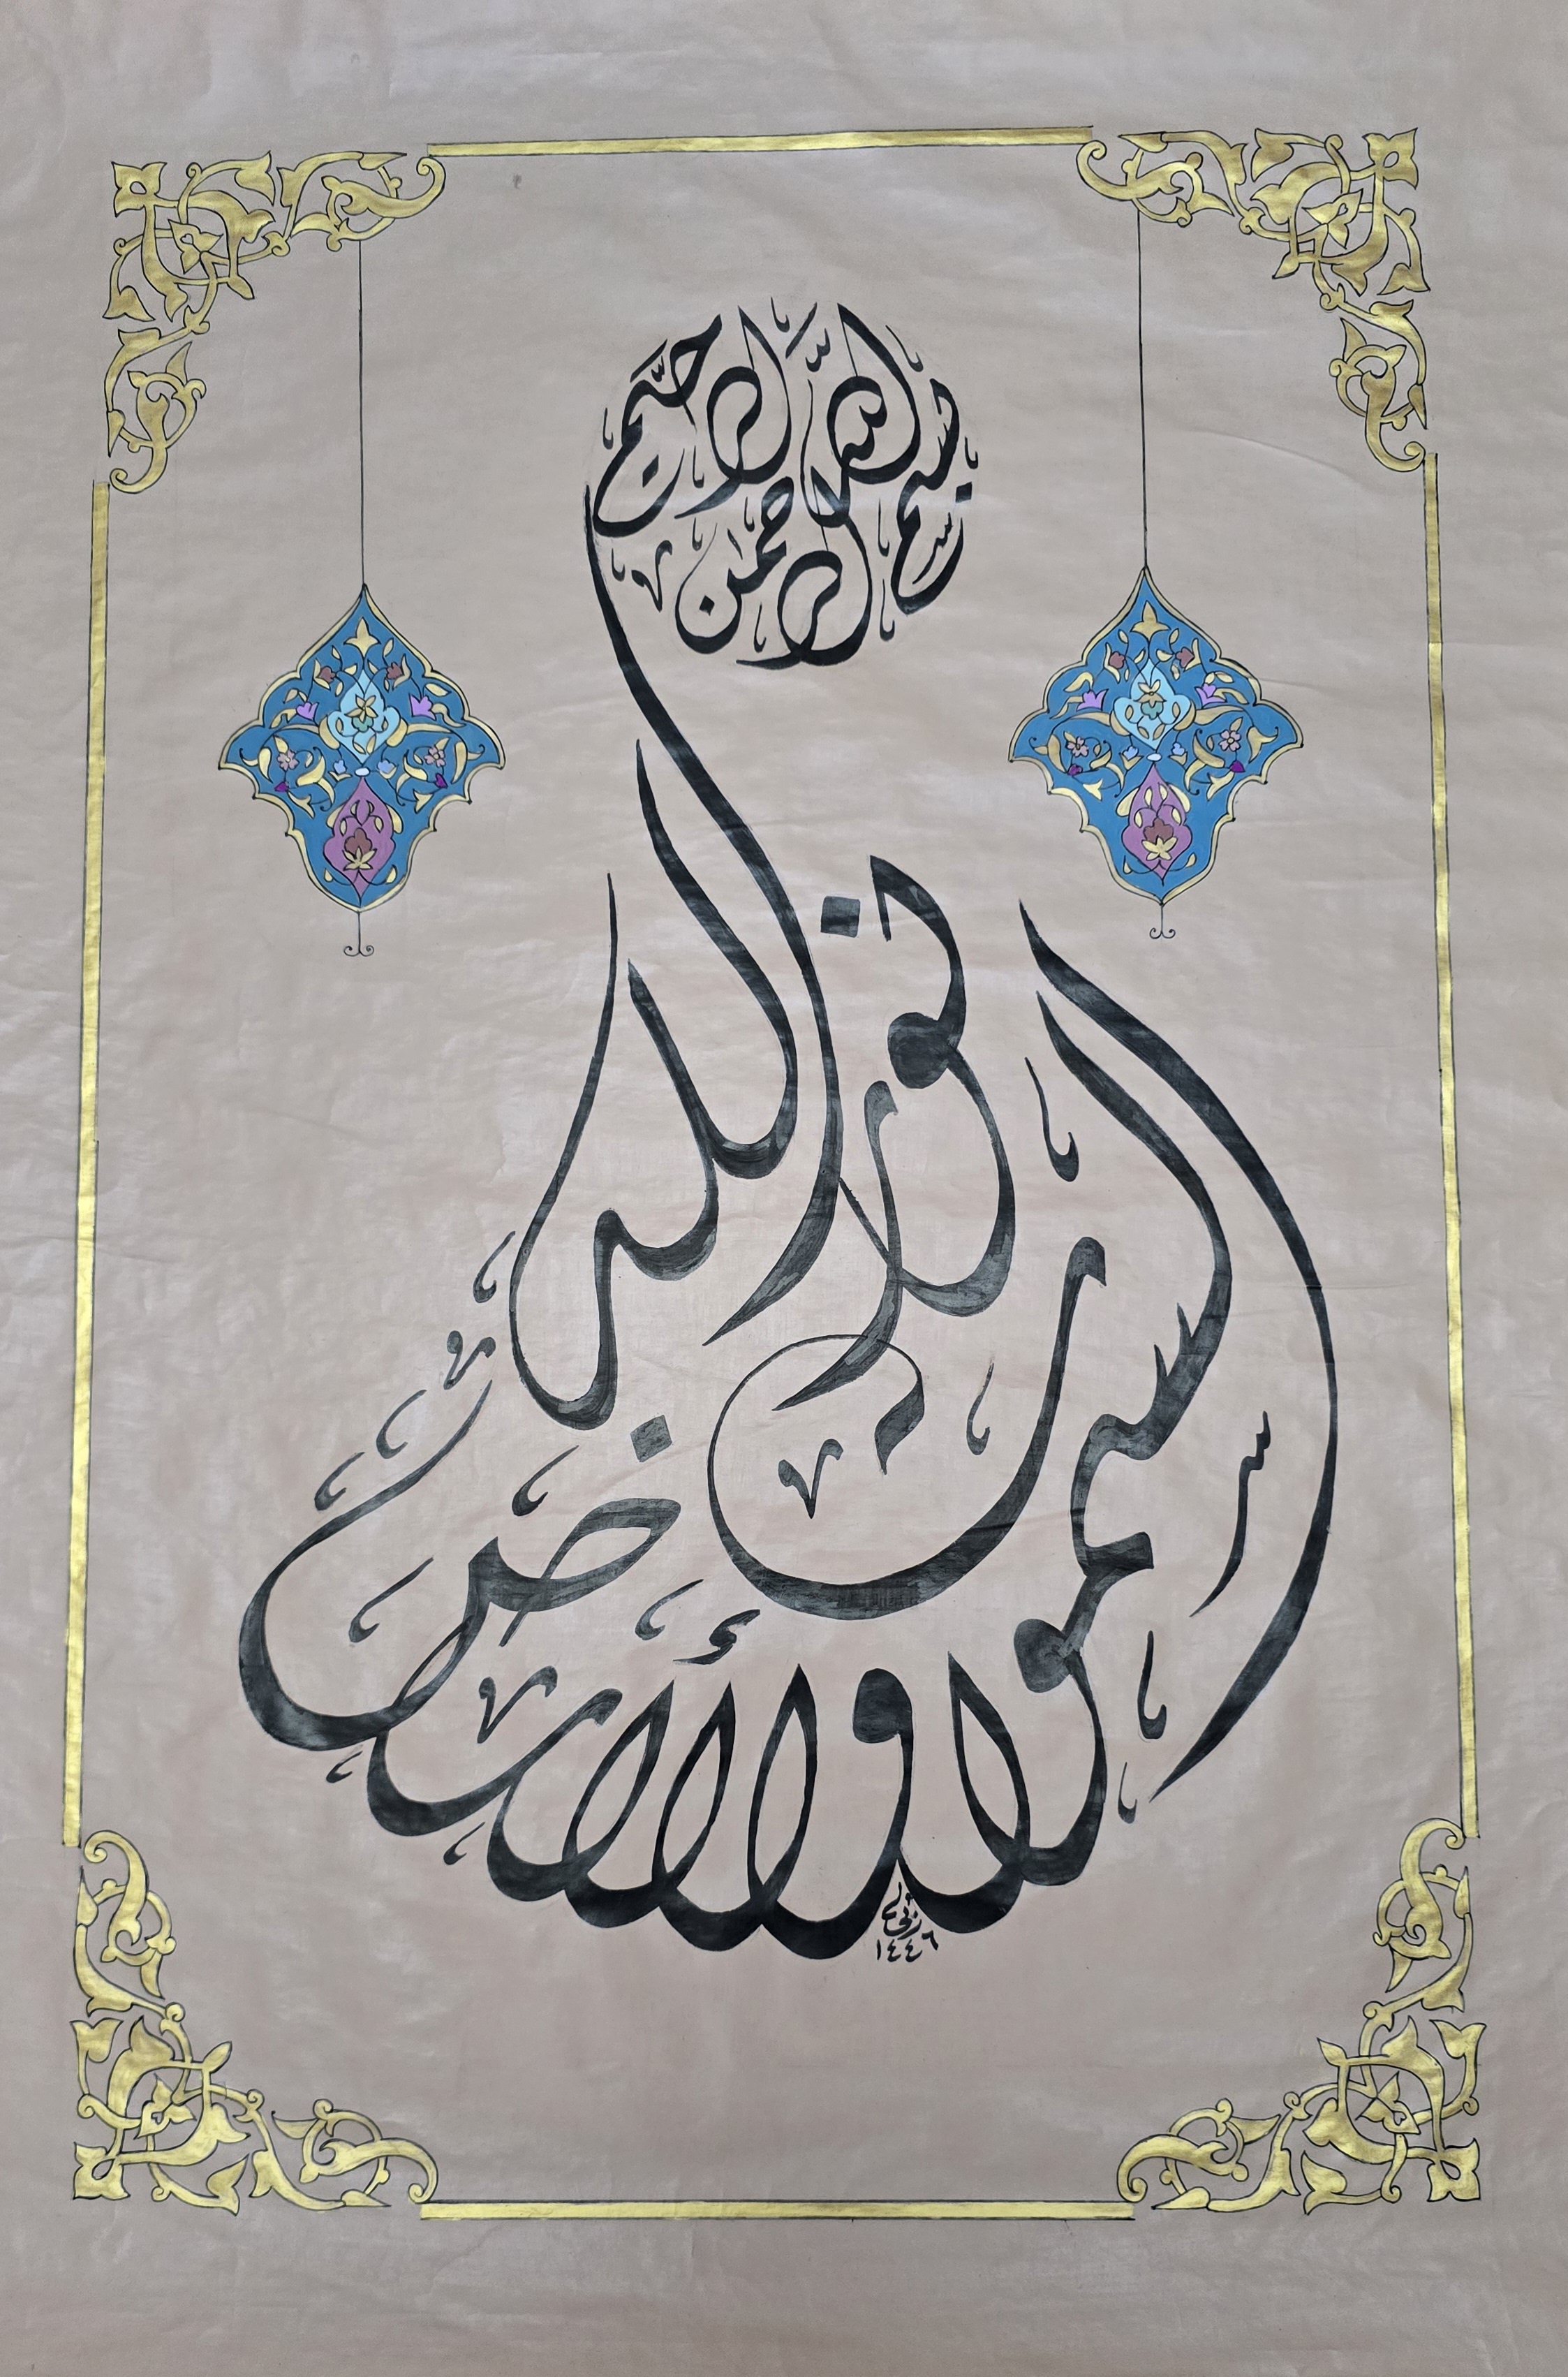 بسم الله الرحمن الرحيم
الله نور السموات والأرض
١٤٤٦